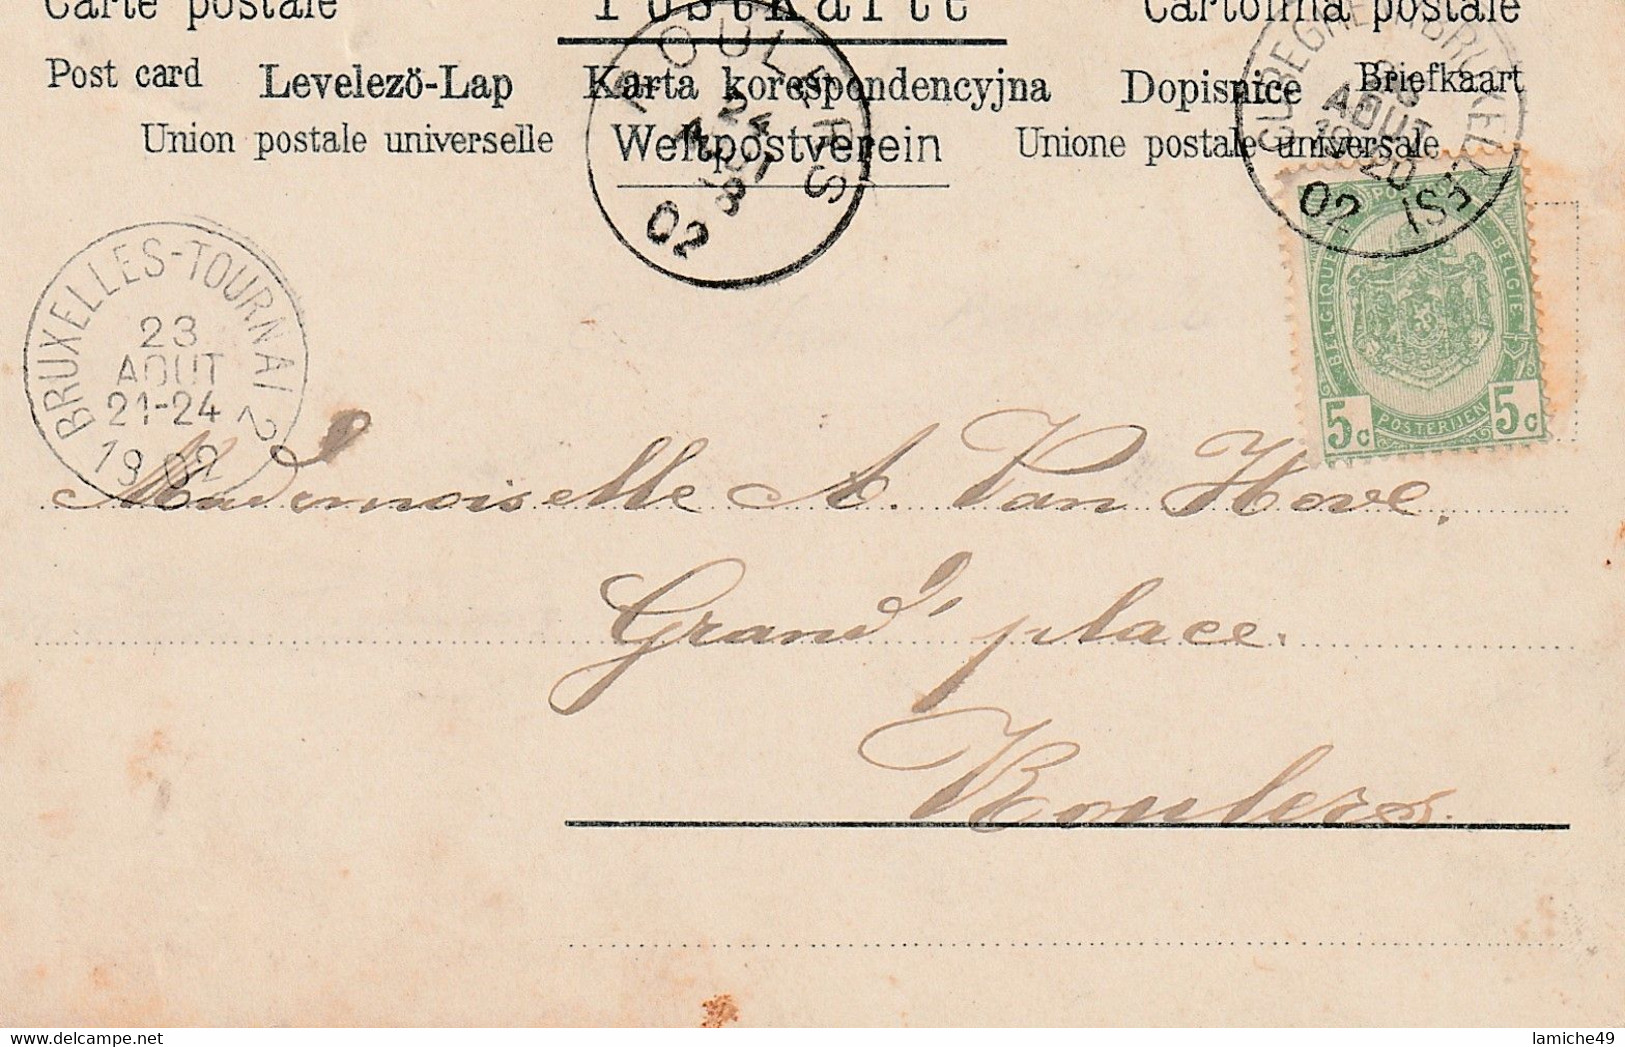 Carte postale Postkarte Cartolina postale
Post card Levelező-Lap Karta korespondencyjna Dopisnice Briefkaart
Union postale universelle Weltpostverein Unione postale universale
ROULERS
24
AOUT
8
02
23
AOUT
19-20
02
BRUXELLES-TOURNAI 2
23
AOUT
21-24
1902
BELGIQUE POSTES BELGIË
5c POSTERIJEN 5c
Mademoiselle A. Van Hove.
Grand' place.
Roulers.
lamiche49